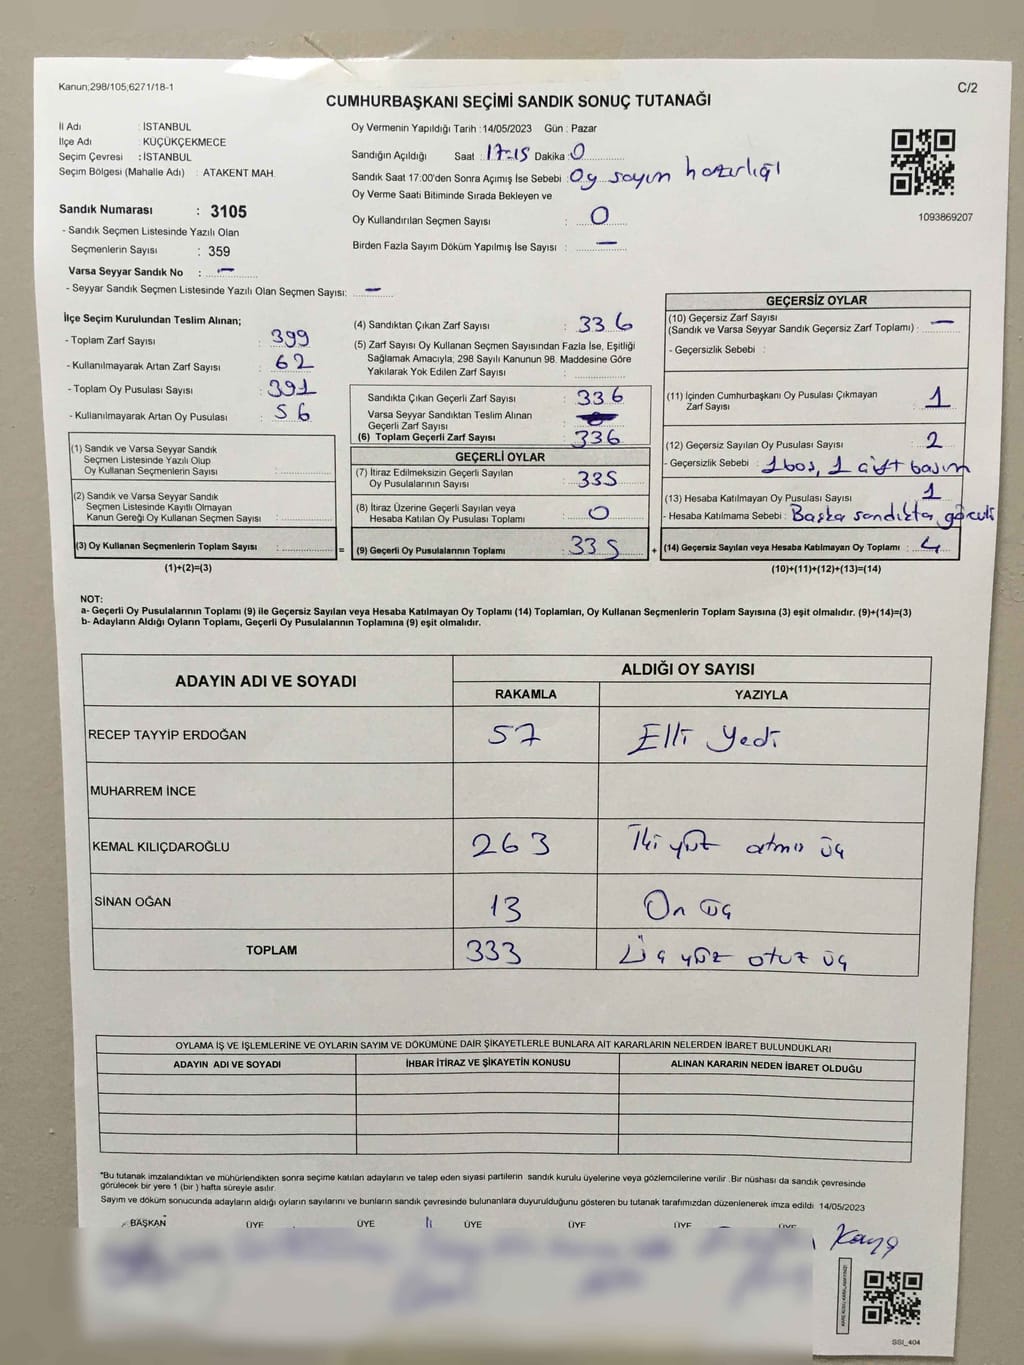 Kanun;298/105;6271/18-1
C/2
CUMHURBAŞKANI SEÇİMİ SANDIK SONUÇ TUTANAĞI
İl Adı : İSTANBUL
İlçe Adı : KÜÇÜKÇEKMECE
Seçim Çevresi : İSTANBUL
Seçim Bölgesi (Mahalle Adı) : ATAKENT MAH.
Sandık Numarası : 3105
- Sandık Seçmen Listesinde Yazılı Olan
Seçmenlerin Sayısı : 359
Varsa Seyyar Sandık No : -
- Seyyar Sandık Seçmen Listesinde Yazılı Olan Seçmen Sayısı: -
Oy Vermenin Yapıldığı Tarih :14/05/2023 Gün : Pazar
Sandığın Açıldığı Saat : 17:15 Dakika : 0
Sandık Saat 17:00'den Sonra Açımış İse Sebebi : Oy sayım hazırlığı
Oy Verme Saati Bitiminde Sırada Bekleyen ve
Oy Kullandırılan Seçmen Sayısı : 0
Birden Fazla Sayım Döküm Yapılmış İse Sayısı : -
1093869207
İlçe Seçim Kurulundan Teslim Alınan;
- Toplam Zarf Sayısı : 399
- Kullanılmayarak Artan Zarf Sayısı : 62
- Toplam Oy Pusulası Sayısı : 391
- Kullanılmayarak Artan Oy Pusulası : 56
(1) Sandık ve Varsa Seyyar Sandık
Seçmen Listesinde Yazılı Olup
Oy Kullanan Seçmenlerin Sayısı :
(2) Sandık ve Varsa Seyyar Sandık
Seçmen Listesinde Kayıtlı Olmayan
Kanun Gereği Oy Kullanan Seçmen Sayısı :
(3) Oy Kullanan Seçmenlerin Toplam Sayısı :
(1)+(2)=(3)
(4) Sandıktan Çıkan Zarf Sayısı : 336
(5) Zarf Sayısı Oy Kullanan Seçmen Sayısından Fazla İse, Eşitliği
Sağlamak Amacıyla, 298 Sayılı Kanunun 98. Maddesine Göre
Yakılarak Yok Edilen Zarf Sayısı :
Sandıkta Çıkan Geçerli Zarf Sayısı : 336
Varsa Seyyar Sandıktan Teslim Alınan
Geçerli Zarf Sayısı :
(6) Toplam Geçerli Zarf Sayısı : 336
GEÇERLİ OYLAR
(7) İtiraz Edilmeksizin Geçerli Sayılan
Oy Pusulalarının Sayısı : 335
(8) İtiraz Üzerine Geçerli Sayılan veya
Hesaba Katılan Oy Pusulası Toplamı : 0
= (9) Geçerli Oy Pusulalarının Toplamı : 335 +
GEÇERSİZ OYLAR
(10) Geçersiz Zarf Sayısı
(Sandık ve Varsa Seyyar Sandık Geçersiz Zarf Toplamı) : -
- Geçersizlik Sebebi :
(11) İçinden Cumhurbaşkanı Oy Pusulası Çıkmayan
Zarf Sayısı : 1
(12) Geçersiz Sayılan Oy Pusulası Sayısı : 2
- Geçersizlik Sebebi : 1 boş, 1 çift basım
(13) Hesaba Katılmayan Oy Pusulası Sayısı : 1
- Hesaba Katılmama Sebebi : Başka sandıkta görevli
(14) Geçersiz Sayılan veya Hesaba Katılmayan Oy Toplamı : 4
(10)+(11)+(12)+(13)=(14)
NOT:
a- Geçerli Oy Pusulalarının Toplamı (9) ile Geçersiz Sayılan veya Hesaba Katılmayan Oy Toplamı (14) Toplamları, Oy Kullanan Seçmenlerin Toplam Sayısına (3) eşit olmalıdır. (9)+(14)=(3)
b- Adayların Aldığı Oyların Toplamı, Geçerli Oy Pusulalarının Toplamına (9) eşit olmalıdır.
ADAYIN ADI VE SOYADI
ALDIĞI OY SAYISI
RAKAMLA YAZIYLA
RECEP TAYYİP ERDOĞAN 57 Elli Yedi
MUHARREM İNCE
KEMAL KILIÇDAROĞLU 263 İki yüz atmış üç
SİNAN OĞAN 13 On üç
TOPLAM 333 Üç yüz otuz üç
OYLAMA İŞ VE İŞLEMLERİNE VE OYLARIN SAYIM VE DÖKÜMÜNE DAİR ŞİKAYETLERLE BUNLARA AİT KARARLARIN NELERDEN İBARET BULUNDUKLARI
ADAYIN ADI VE SOYADI İHBAR İTİRAZ VE ŞİKAYETİN KONUSU ALINAN KARARIN NEDEN İBARET OLDUĞU
*Bu tutanak imzalandıktan ve mühürlendikten sonra seçime katılan adayların ve talep eden siyasi partilerin sandık kurulu üyelerine veya gözlemcilerine verilir .Bir nüshası da sandık çevresinde
görülecek bir yere 1 (bir ) hafta süreyle asılır.
Sayım ve döküm sonucunda adayların aldığı oyların sayılarını ve bunların sandık çevresinde bulunanlara duyurulduğunu gösteren bu tutanak tarafımızdan düzenlenerek imza edildi 14/05/2023
BAŞKAN ÜYE ÜYE ÜYE ÜYE ÜYE ÜYE
SSI_404